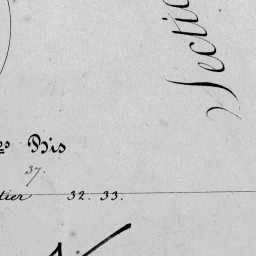 Sectio
es Bis
37.
tier 32. 33.